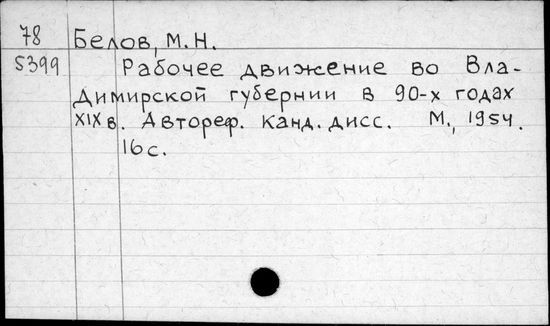 78 Белов, М.Н.
5399 Рабочее движение во Вла-
димирской губернии в 90-х годах
XIX в. Автореф. канд. дисс. М., 1954.
16 с.